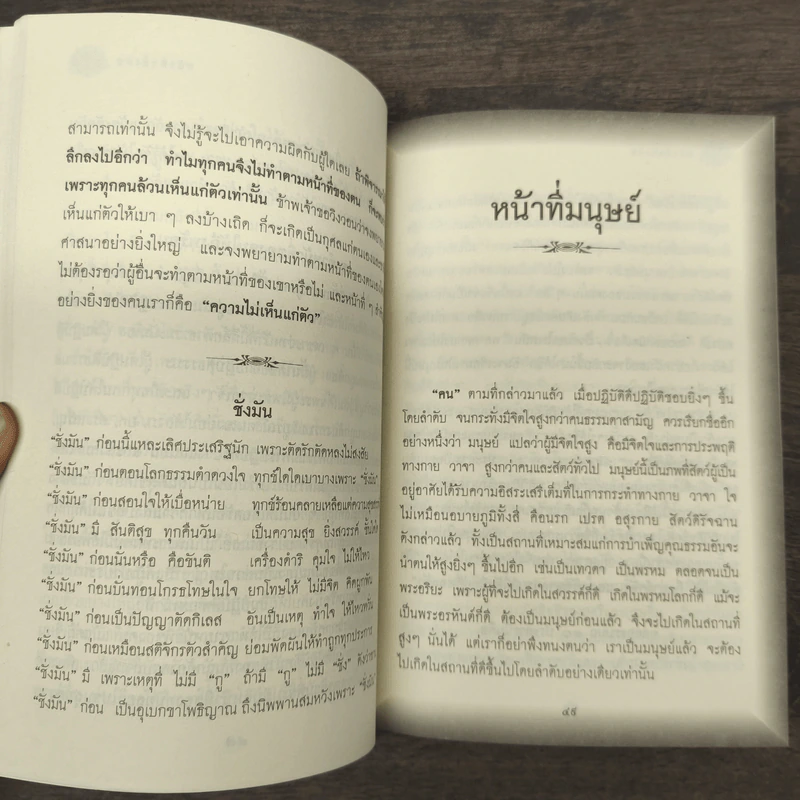 สามารถเท่านั้น จึงไม่รู้จะไปเอาความผิดกับผู้ใดเลย
ลึกลงไปอีกว่า ทำไมทุกคนจึงไม่ทำตามหน้าที่ของตน
เพราะทุกคนล้วนเห็นแก่ตัวเท่านั้น ข้าพเจ้าขอวิงวอนว่า
เห็นแก่ตัวให้เบา ๆ ลงบ้างเถิด ก็จะเกิดเป็นกุศลแก่ตนเองและ
ศาสนาอย่างยิ่งใหญ่ และจงพยายามทำตามหน้าที่ของตนเอง
ไม่ต้องรอว่าผู้อื่นจะทำตามหน้าที่ของเขาหรือไม่ และหน้าที่ ๆ
อย่างยิ่งของคนเราก็คือ “ความไม่เห็นแก่ตัว”
ชั่งมัน
“ชั่งมัน” ก่อนนี้แหละเลิศประเสริฐนัก เพราะตัดรักตัดหลงไม่สงสัย
“ชั่งมัน” ก่อนตอนโลกธรรมดำดวงใจ ทุกข์ใดใดเบาบางเพราะ “ชั่งมัน”
“ชั่งมัน” ก่อนสอนใจให้เบื่อหน่าย ทุกข์ร้อนคลายเหลือแต่ความสุข
“ชั่งมัน” มี สันติสุข ทุกคืนวัน เป็นความสุข ยิ่งสวรรค์
“ชั่งมัน” ก่อนนั่นหรือ คือขันติ เครื่องดำริ คุมใจ ไม่ให้ไหว
“ชั่งมัน” ก่อนบั่นทอนโกรธโทษในใจ ยกโทษให้ ไม่มีจิต คิดผูกพัน
“ชั่งมัน” ก่อนเป็นปัญญาตัดกิเลส อันเป็นเหตุ ทำใจ ให้ไหวหวั่น
“ชั่งมัน” ก่อนเหมือนสติจักรตัวสำคัญ ย่อมพัดผันให้ทำถูกทุกประการ
“ชั่งมัน” มี เพราะเหตุที่ ไม่มี “กู” ถ้ามี “กู” ไม่มี “ชั่ง”
“ชั่งมัน” ก่อน เป็นอุเบกขาโพธิญาณ ถึงนิพพานสมหวังเพราะ “ชั่งมัน”
หน้าที่มนุษย์
“คน” ตามที่กล่าวมาแล้ว เมื่อปฏิบัติดีปฏิบัติชอบยิ่งๆ ขึ้น
โดยลำดับ จนกระทั่งมีจิตใจสูงกว่าคนธรรมดาสามัญ ควรเรียกชื่ออีก
อย่างหนึ่งว่า มนุษย์ แปลว่าผู้มีจิตใจสูง คือมีจิตใจและการประพฤติ
ทางกาย วาจา สูงกว่าคนและสัตว์ทั่วไป มนุษย์นี้เป็นภพที่สัตว์ผู้เป็น
อยู่อาศัยได้รับความอิสระเสรีเต็มที่ในการกระทำทางกาย วาจา ใจ
ไม่เหมือนอบายภูมิทั้งสี่ คือนรก เปรต อสุรกาย สัตว์ดิรัจฉาน
ดังกล่าวแล้ว ทั้งเป็นสถานที่เหมาะสมแก่การบำเพ็ญคุณธรรมอันจะ
นำตนให้สูงยิ่งๆ ขึ้นไปอีก เช่นเป็นเทวดา เป็นพรหม ตลอดจนเป็น
พระอริยะ เพราะผู้ที่จะไปเกิดในสวรรค์ก็ดี เกิดในพรหมโลกก็ดี แม้จะ
เป็นพระอรหันต์ก็ดี ต้องเป็นมนุษย์ก่อนแล้ว จึงจะไปเกิดในสถานที่
สูงๆ นั่นได้ แต่เราก็อย่าพึ่งทนงตนว่า เราเป็นมนุษย์แล้ว จะต้อง
ไปเกิดในสถานที่ดีขึ้นไปโดยลำดับอย่างเดียวเท่านั้น
๔๙